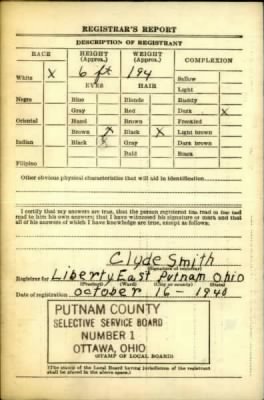 REGISTRAR'S REPORT
DESCRIPTION OF REGISTRANT
RACE HEIGHT (Approx.) WEIGHT (Approx.) COMPLEXION
White X 6 ft 194 Sallow
EYES HAIR Light
Negro Blue Blonde Ruddy
Gray Red Dark X
Oriental Hazel Brown Freckled
Brown X Black X Light brown
Indian Black Gray Dark brown
Bald Black
Filipino
Other obvious physical characteristics that will aid in identification
I certify that my answers are true; that the person registered has read or has had
read to him his own answers; that I have witnessed his signature or mark and that
all of his answers of which I have knowledge are true, except as follows:
Clyde Smith
(Signature of registrar)
Registrar for Liberty East Putnam Ohio
(Precinct) (Ward) (City or county) (State)
Date of registration October 16 - 1940
PUTNAM COUNTY
SELECTIVE SERVICE BOARD
NUMBER 1
OTTAWA, OHIO
(STAMP OF LOCAL BOARD)
(The stamp of the Local Board having jurisdiction of the registrant
shall be placed in the above space.)